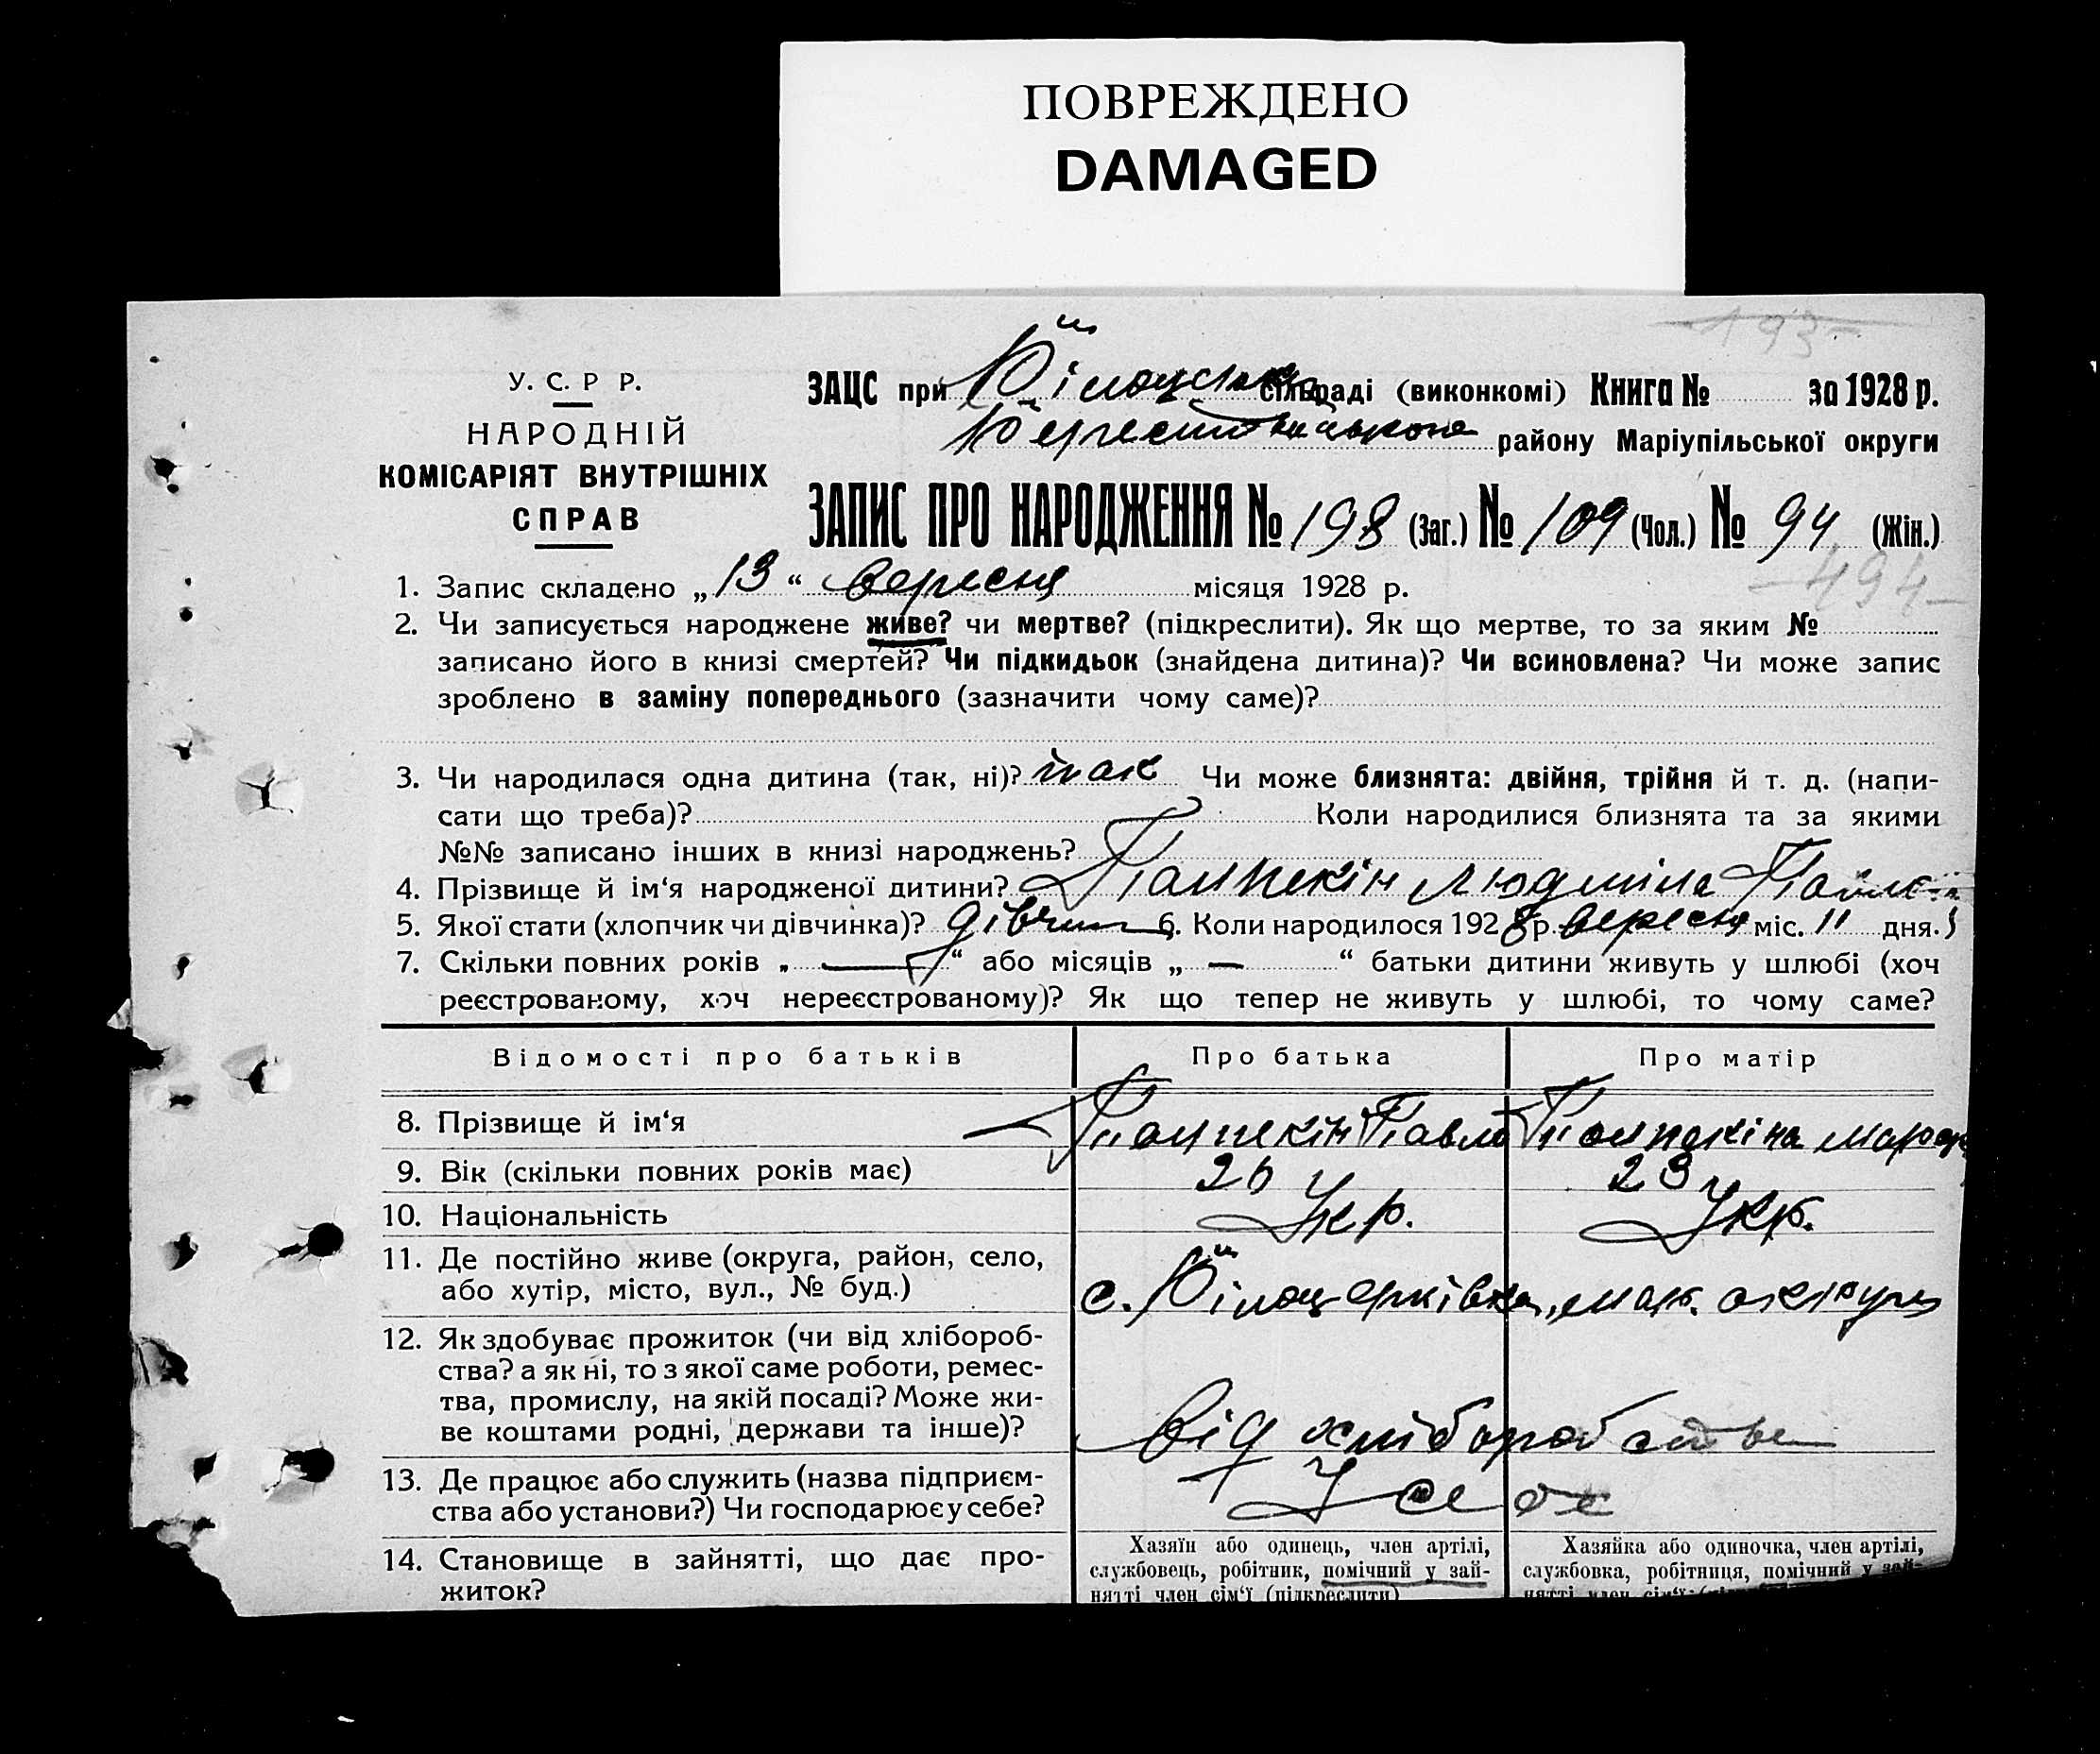 ПОВРЕЖДЕНО
DAMAGED
193
У. С. Р Р.
НАРОДНІЙ
КОМІСАРІЯТ ВНУТРІШНІХ
СПРАВ
ЗАЦС при сільраді (виконкомі) Книга № за 1928 р.
району Маріупільської округи
ЗАПИС ПРО НАРОДЖЕННЯ № 198 (Заг.) № 109 (Чол.) № 94 (Жін.)
494
1. Запис складено „13“ вересня місяця 1928 р.
2. Чи записується народжене живе? чи мертве? (підкреслити). Як що мертве, то за яким №
записано його в книзі смертей? Чи підкидьок (знайдена дитина)? Чи всиновлена? Чи може запис
зроблено в заміну попереднього (зазначити чому саме)?
3. Чи народилася одна дитина (так, ні)? так Чи може близнята: двійня, трійня й т. д. (напи-
сати що треба)? Коли народилися близнята та за якими
№№ записано інших в книзі народжень?
4. Прізвище й ім‘я народженої дитини? Людміла
5. Якої стати (хлопчик чи дівчинка)? дівчин 6. Коли народилося 1928 р. вересня міс. 11 дня.
7. Скільки повних років „ — “ або місяців „ — “ батьки дитини живуть у шлюбі (хоч
реєстрованому, хоч нереєстрованому)? Як що тепер не живуть у шлюбі, то чому саме?
Відомості про батьків Про батька Про матір
8. Прізвище й ім‘я Павло
9. Вік (скільки повних років має) 26 23
10. Національність Укр. Укр.
11. Де постійно живе (округа, район, село,
або хутір, місто, вул., № буд.) с. Білоцерківка, мар. округи
12. Як здобуває прожиток (чи від хлібороб-
ства? а як ні, то з якої саме роботи, ремес-
тва, промислу, на якій посаді? Може жи-
ве коштами родні, держави та інше)? Від хліборобства
13. Де працює або служить (назва підприєм-
ства або установи?) Чи господарює у себе? У себе
14. Становище в зайнятті, що дає про-
житок?
Хазяїн або одинець, член артілі,
службовець, робітник, помічний у зай-
нятті член сім‘ї (підкреслити)
Хазяйка або одиночка, член артілі,
службовка, робітниця, помічний у зай-
нятті член сім‘ї